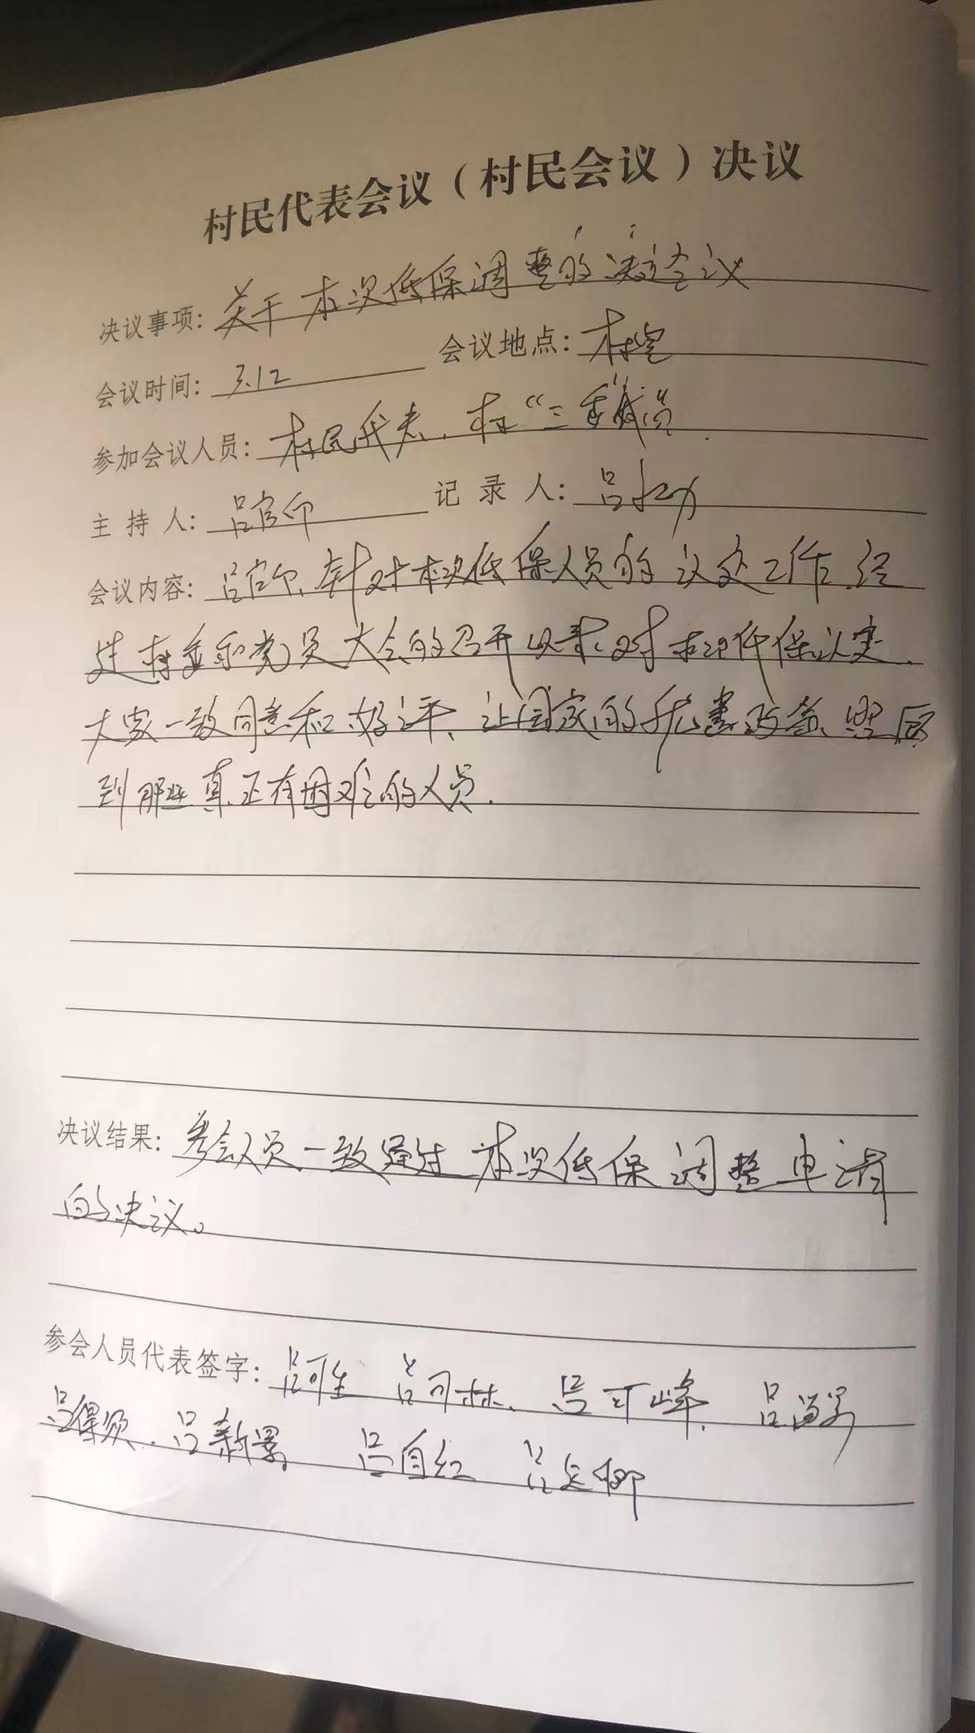 村民代表会议（村民会议）决议
决议事项：关于本次低保调整的决定会议
会议时间：3.12 会议地点：村室
参加会议人员：村民代表、村“三委”成员
主持人：吕官印 记录人：吕
会议内容：吕官印、针对本次低保人员的议定工作、经
过村委和党员大会的召开以来、对本次低保认定、
大家一致同意和好评、让国家的优惠政策、照顾
到那些真正有困难的人员.
决议结果：参会人员一致通过本次低保调整申请
的决议。
参会人员代表签字：吕可生 吕可林、吕可峰、吕
吕得领、吕新 吕自红 吕